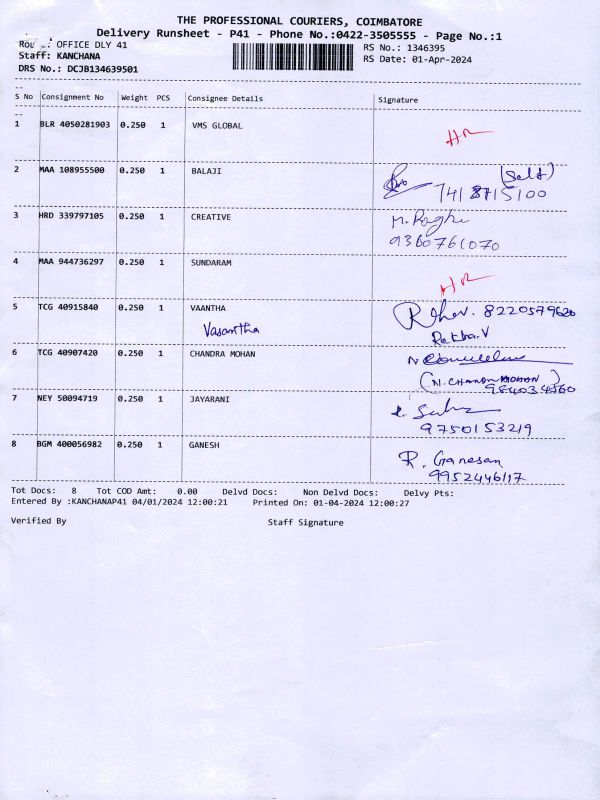 THE PROFESSIONAL COURIERS, COIMBATORE
Delivery Runsheet - P41 - Phone No.:0422-3505555 - Page No.:1
OFFICE DLY 41 RS No.: 1346395
Staff: KANCHANA RS Date: 01-Apr-2024
DRS No.: DCJB134639501
S No Consignment No Weight PCS Consignee Details Signature
1 BLR 4050281903 0.250 1 VMS GLOBAL
2 MAA 108955500 0.250 1 BALAJI (Self)
7418715100
3 HRD 339797105 0.250 1 CREATIVE
9360761070
4 MAA 944736297 0.250 1 SUNDARAM
5 TCG 40915840 0.250 1 VAANTHA 8220579620
Vasantha Rekha.V
6 TCG 40907420 0.250 1 CHANDRA MOHAN
(N. CHANDRA MOHAN)
7 NEY 50094719 0.250 1 JAYARANI
9750153219
8 BGM 400056982 0.250 1 GANESH R. Ganesan
9952446117
Tot Docs: 8 Tot COD Amt: 0.00 Delvd Docs: Non Delvd Docs: Delvy Pts:
Entered By :KANCHANAP41 04/01/2024 12:00:21 Printed On: 01-04-2024 12:00:27
Verified By Staff Signature